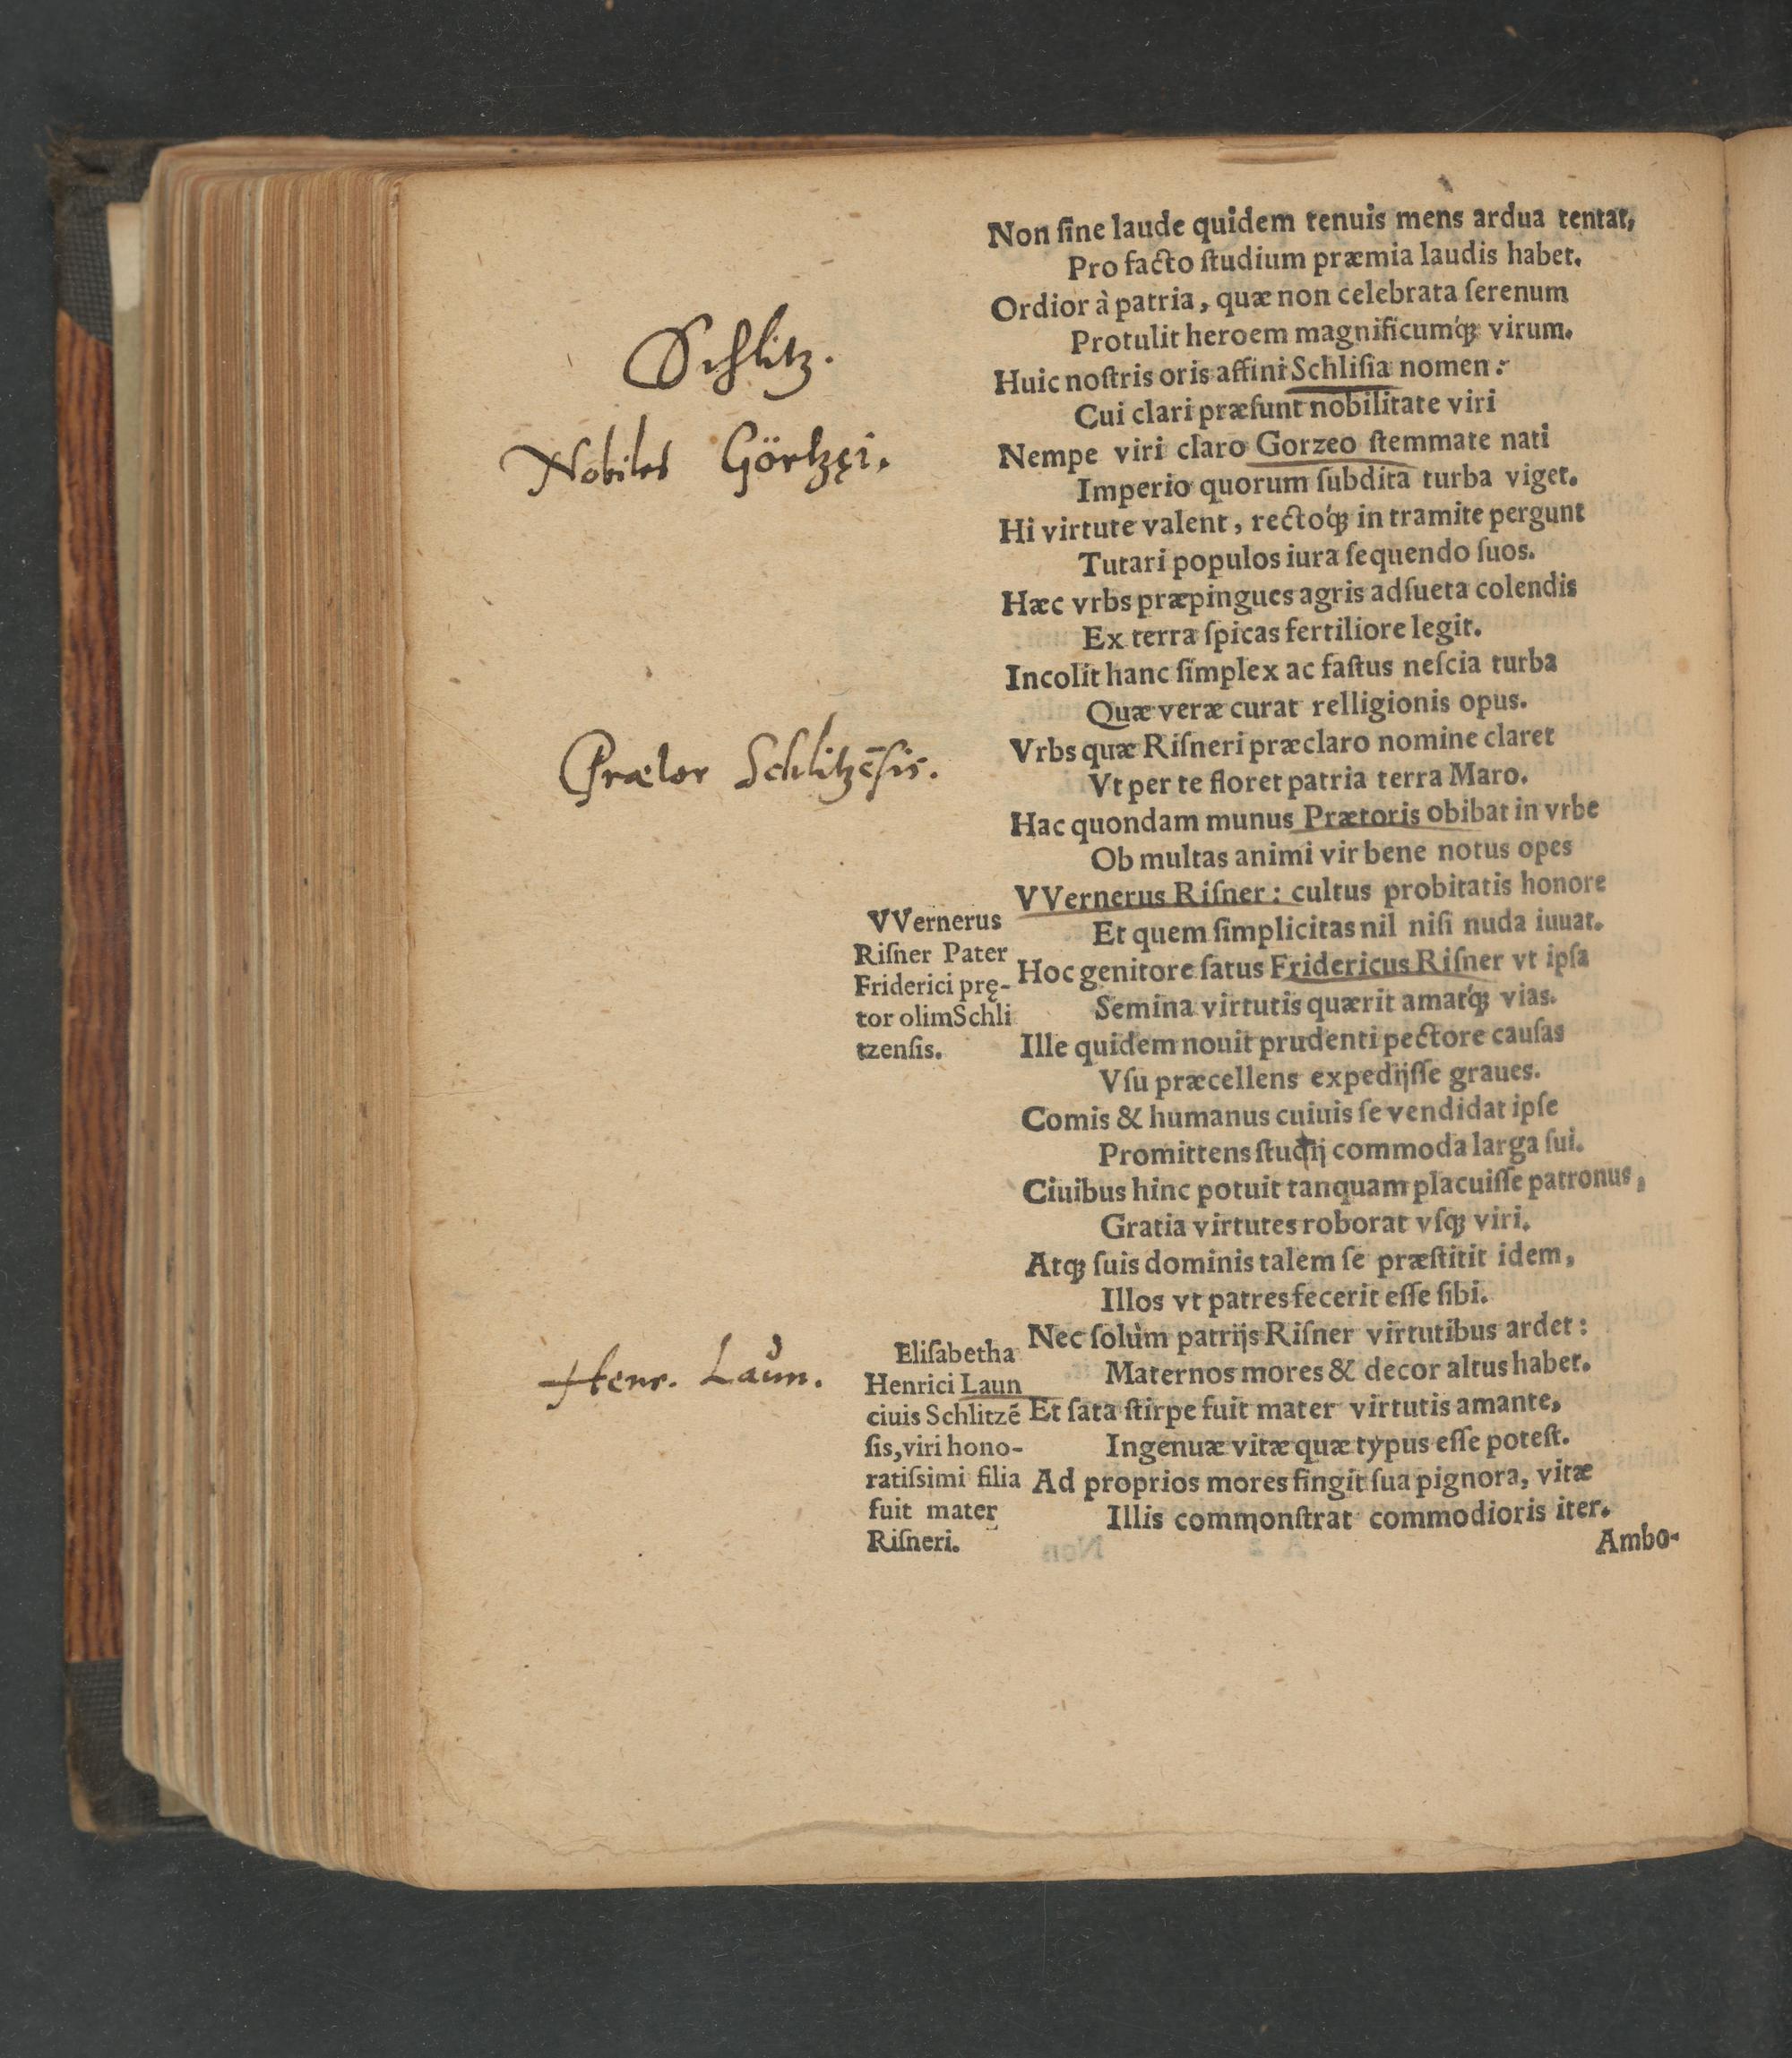 Non ſine laude quidem tenuis mens ardua tentat,
Pro facto ſtudium præmia laudis habet.
Ordior à patria, quæ non celebrata ſerenum
Protulit heroem magnificumq́ꝫ virum.
Schlitz.
Huic noſtris oris affini Schliſia nomen:
Cui clari præſunt nobilitate viri
Nobiles Görtzęi.
Nempe viri claro Gorzeo ſtemmate nati
Imperio quorum ſubdita turba viget.
Hi virtute valent, rectoq́ꝫ in tramite pergunt
Tutari populos iura ſequendo ſuos.
Hæc vrbs præpingues agris adſueta colendis
Ex terra ſpicas fertiliore legit.
Incolit hanc ſimplex ac faſtus neſcia turba
Quæ veræ curat relligionis opus.
Vrbs quæ Riſneri præclaro nomine claret
Vt per te floret patria terra Maro.
Prætor Schlitzēſis.
Hac quondam munus Prætoris obibat in vrbe
Ob multas animi vir bene notus opes
VVernerus Riſner: cultus probitatis honore
Et quem ſimplicitas nil niſi nuda iuuat.
VVernerus
Riſner Pater
Friderici prę-
tor olim Schli
tzenſis.
Hoc genitore ſatus Fridericus Riſner vt ipſa
Semina virtutis quærit amatq́ꝫ vias.
Ille quidem nouit prudenti pectore cauſas
Vſu præcellens expedijſſe graues.
Comis & humanus cuiuis ſe vendidat ipſe
Promittens ſtudij commoda larga ſui.
Ciuibus hinc potuit tanquam placuiſſe patronus,
Gratia virtutes roborat vſqꝫ viri.
Atqꝫ ſuis dominis talem ſe præſtitit idem,
Illos vt patres fecerit eſſe ſibi.
Nec ſolùm patrijs Riſner virtutibus ardet:
Maternos mores & decor altus habet.
Henr. Laun.
Eliſabetha
Henrici Laun
ciuis Schlitzē
ſis, viri hono-
ratiſsimi filia
fuit mater
Riſneri.
Et ſata ſtirpe fuit mater virtutis amante,
Ingenuæ vitæ quæ typus eſſe poteſt.
Ad proprios mores fingit ſua pignora, vitæ
Illis commonſtrat commodioris iter.
Ambo-